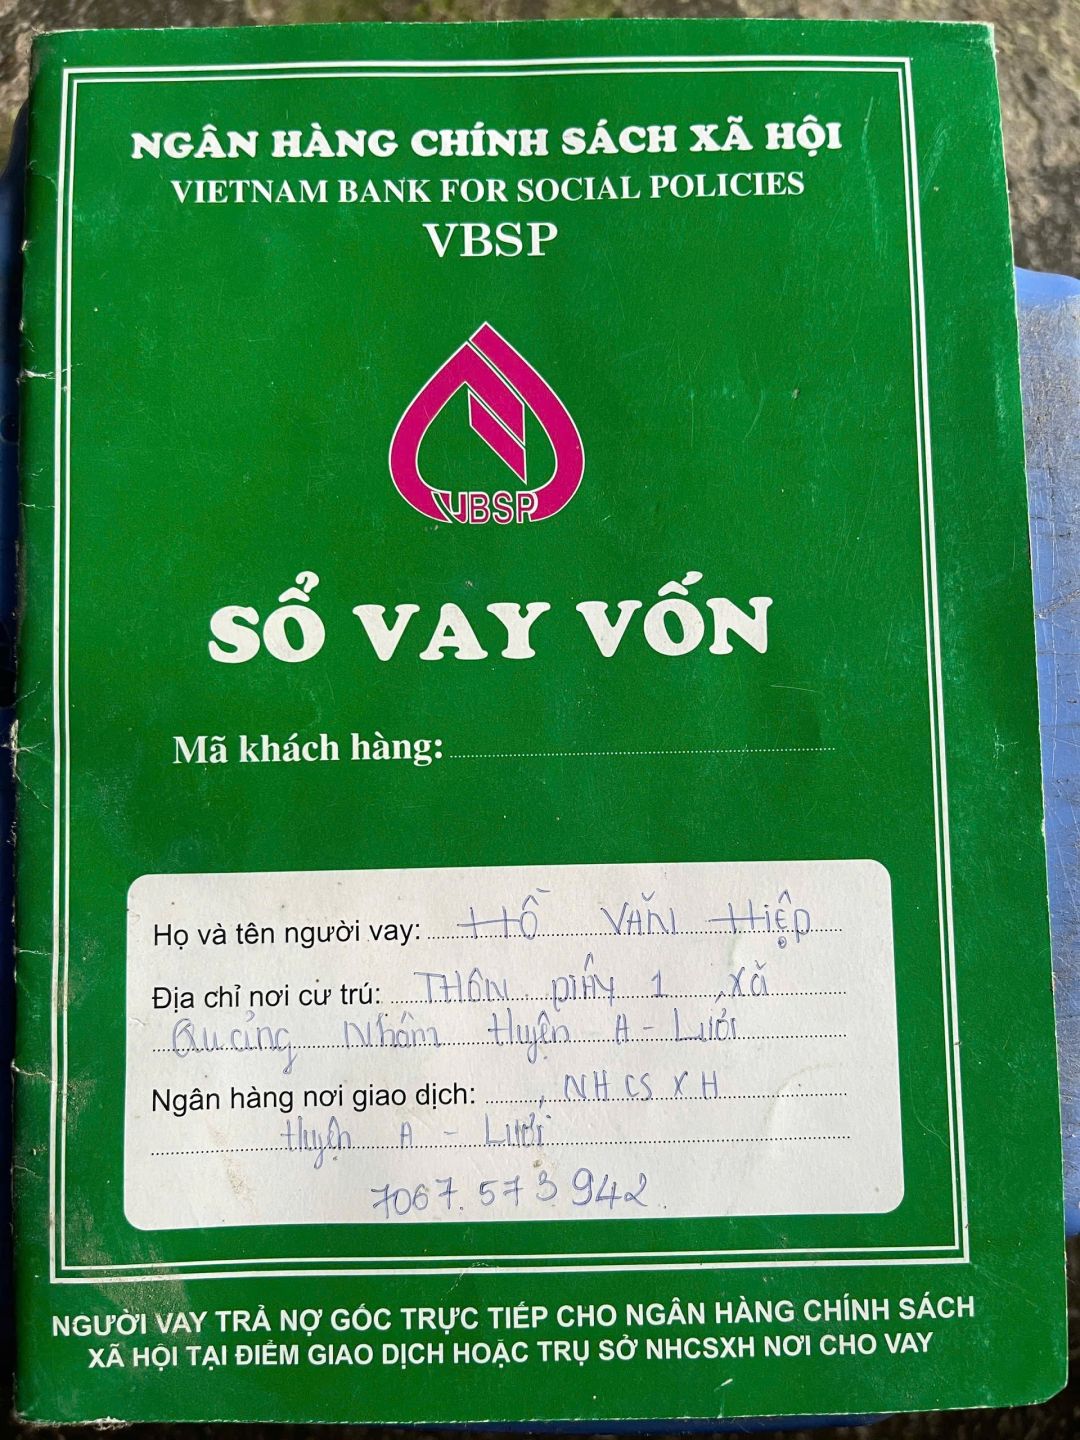 NGÂN HÀNG CHÍNH SÁCH XÃ HỘI
VIETNAM BANK FOR SOCIAL POLICIES
VBSP
VBSP
SỔ VAY VỐN
Mã khách hàng:
Họ và tên người vay: HỒ VĂN HIỆP
Địa chỉ nơi cư trú: THÔN PIÂY 1, xã
Quảng Nhâm Huyện A - Lưới
Ngân hàng nơi giao dịch: NHCSXH
Huyện A - Lưới
7067.573942
NGƯỜI VAY TRẢ NỢ GỐC TRỰC TIẾP CHO NGÂN HÀNG CHÍNH SÁCH
XÃ HỘI TẠI ĐIỂM GIAO DỊCH HOẶC TRỤ SỞ NHCSXH NƠI CHO VAY